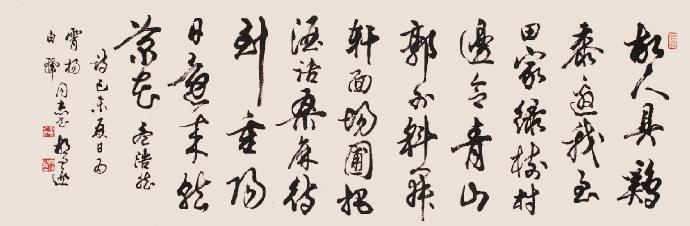 故人具鷄
黍邀我至
田家綠樹村
邊合青山
郭外斜開
軒面場圃把
酒話桑麻待
到重陽
日還來就
菊花 孟浩然
詩己未夏日为
霄揚
同志